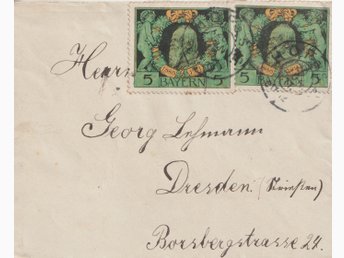 5 BAYERN 5
5 BAYERN 5
HOF
Herrn
Georg Lehmann
Dresden (Striesen)
Borsbergstrasse 24.